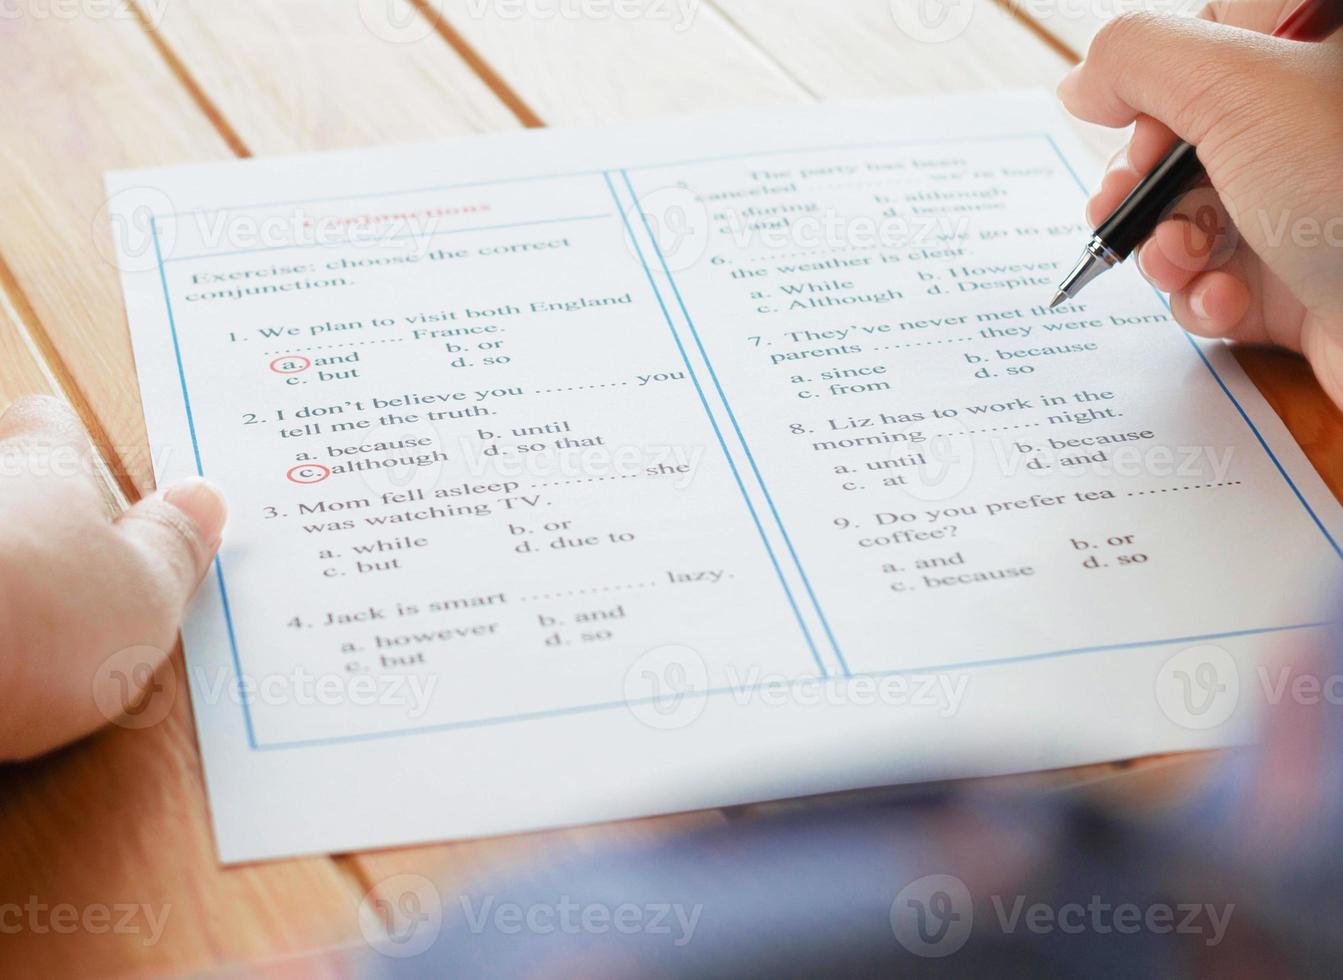 Conjunctions
Exercise: choose the correct
conjunction.
1. We plan to visit both England
.............. France.
a. and b. or
c. but d. so
2. I don't believe you .......... you
tell me the truth.
a. because b. until
c. although d. so that
3. Mom fell asleep ............. she
was watching TV.
a. while b. or
c. but d. due to
4. Jack is smart .............. lazy.
a. however b. and
c. but d. so
5. The party has been
canceled .............. we're busy
a. during b. although
c. and d. because
6. .............. we go to gym
the weather is clear.
a. While b. However
c. Although d. Despite
7. They've never met their
parents .......... they were born
a. since b. because
c. from d. so
8. Liz has to work in the
morning ........... night.
a. until b. because
c. at d. and
9. Do you prefer tea ............
coffee?
a. and b. or
c. because d. so
Vecteezy